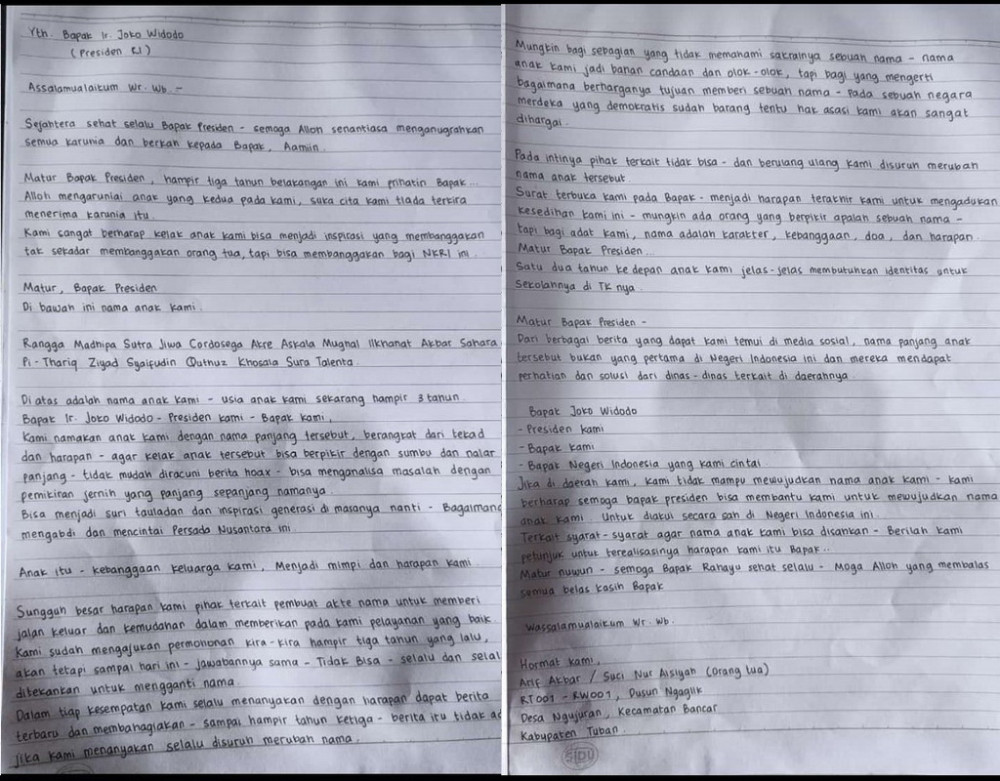 Yth. Bapak Ir. Joko Widodo
( Presiden RI )
Assalamualaikum Wr. Wb. -
Sejahtera sehat selalu Bapak Presiden - semoga Alloh senantiasa menganugrahkan
semua karunia dan berkah kepada Bapak, Aamiin.
Matur Bapak Presiden, hampir tiga tahun belakangan ini kami prihatin Bapak...
Alloh mengaruniai anak yang kedua pada kami, suka cita kami tiada terkira
menerima karunia itu.
Kami sangat berharap kelak anak kami bisa menjadi inspirasi yang membanggakan
tak sekadar membanggakan orang tua, tapi bisa membanggakan bagi NKRI ini.
Matur, Bapak Presiden
Di bawah ini nama anak kami.
Rangga Madhipa Sutra Jiwa Cordosega Akre Askala Mughal Ilkhanat Akbar Sahara
Pi - Thariq Ziyad Syaifudin Quthuz Khosala Sura Talenta.
Di atas adalah nama anak kami - usia anak kami sekarang hampir 3 tahun.
Bapak Ir. Joko Widodo - Presiden kami - Bapak kami,
Kami namakan anak kami dengan nama panjang tersebut, berangkat dari tekad
dan harapan - agar kelak anak tersebut bisa berpikir dengan sumbu dan nalar
panjang - tidak mudah diracuni berita hoax - bisa menganalisa masalah dengan
pemikiran jernih yang panjang sepanjang namanya.
Bisa menjadi suri tauladan dan inspirasi generasi di masanya nanti - Bagaimana
mengabdi dan mencintai Persada Nusantara ini.
Anak itu - kebanggaan keluarga kami, Menjadi mimpi dan harapan kami.
Sungguh besar harapan kami pihak terkait pembuat akte nama untuk memberi
jalan keluar dan kemudahan dalam memberikan pada kami pelayanan yang baik.
Kami sudah mengajukan permohonan kira-kira hampir tiga tahun yang lalu,
akan tetapi sampai hari ini - jawabannya sama - Tidak Bisa - selalu dan selal
ditekankan untuk mengganti nama.
Dalam tiap kesempatan kami selalu menanyakan dengan harapan dapat berita
terbaru dan membahagiakan - sampai hampir tahun ketiga - berita itu tidak ad
jika kami menanyakan selalu disuruh merubah nama.
Mungkin bagi sebagian yang tidak memahami sakralnya sebuah nama - nama
anak kami jadi bahan candaan dan olok-olok, tapi bagi yang mengerti
bagaimana berharganya tujuan memberi sebuah nama - Pada sebuah negara
merdeka yang demokratis sudah barang tentu hak asasi kami akan sangat
dihargai.
Pada intinya pihak terkait tidak bisa - dan berulang ulang kami disuruh merubah
nama anak tersebut.
Surat terbuka kami pada Bapak - menjadi harapan terakhir kami untuk mengadukan
kesedihan kami ini - mungkin ada orang yang berpikir apalah sebuah nama -
tapi bagi adat kami, nama adalah karakter, kebanggaan, doa, dan harapan.
Matur Bapak Presiden...
Satu dua tahun ke depan anak kami jelas-jelas membutuhkan identitas untuk
Sekolahnya di TK nya.
Matur Bapak Presiden -
Dari berbagai berita yang dapat kami temui di media sosial, nama panjang anak
tersebut bukan yang pertama di Negeri Indonesia ini dan mereka mendapat
perhatian dan solusi dari dinas-dinas terkait di daerahnya.
Bapak Joko Widodo
- Presiden kami
- Bapak kami
- Bapak Negeri Indonesia yang kami cintai.
Jika di daerah kami, kami tidak mampu mewujudkan nama anak kami - kami
berharap semoga bapak presiden bisa membantu kami untuk mewujudkan nama
anak kami. Untuk diakui secara sah di Negeri Indonesia ini.
Terkait syarat-syarat agar nama anak kami bisa disahkan - Berilah kami
petunjuk untuk terealisasinya harapan kami itu Bapak..
Matur nuwun - semoga Bapak Rahayu sehat selalu - Moga Alloh yang membalas
semua belas kasih Bapak
Wassalamualaikum Wr. Wb.
Hormat kami,
Arif Akbar / Suci Nur Aisiyah (orang tua)
RT001 - RW001, Dusun Ngaglik
Desa Ngujuran, Kecamatan Bancar
Kabupaten Tuban.
SIDU